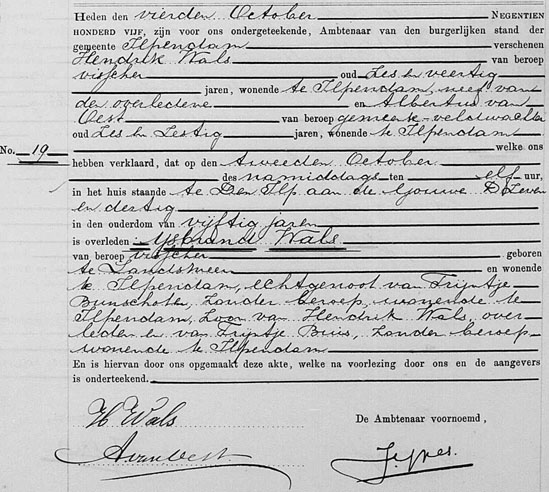 Heden den vierden October NEGENTIEN
HONDERD VIJF, zijn voor ons ondergeteekende, Ambtenaar van den burgerlijken stand der
gemeente Ilpendam verschenen
Hendrik Wals van beroep
visscher oud Zes en veertig
jaren, wonende te Ilpendam, neef van
den overledene en Albertus van
Oest van beroep gemeente-veldwachter
oud Zes en Zestig jaren, wonende te Ilpendam
No. 19 welke ons
hebben verklaard, dat op den tweeden October
des namiddags ten elf uur,
in het huis staande te Den Ilp aan de Gouwe D Zeven
en dertig
in den ouderdom van vijftig jaren
is overleden : IJsbrand Wals
van beroep visscher geboren
te Landsmeer en wonende
te Ilpendam, echtgenoot van Trijntje
Bunschoten, zonder beroep, wonende te
Ilpendam, Zoon van Hendrik Wals, over-
leden en van Trijntje Buis, zonder beroep
wonende te Ilpendam
En is hiervan door ons opgemaakt deze akte, welke na voorlezing door ons en de aangevers
is onderteekend.
H Wals
De Ambtenaar voornoemd,
A van Oest